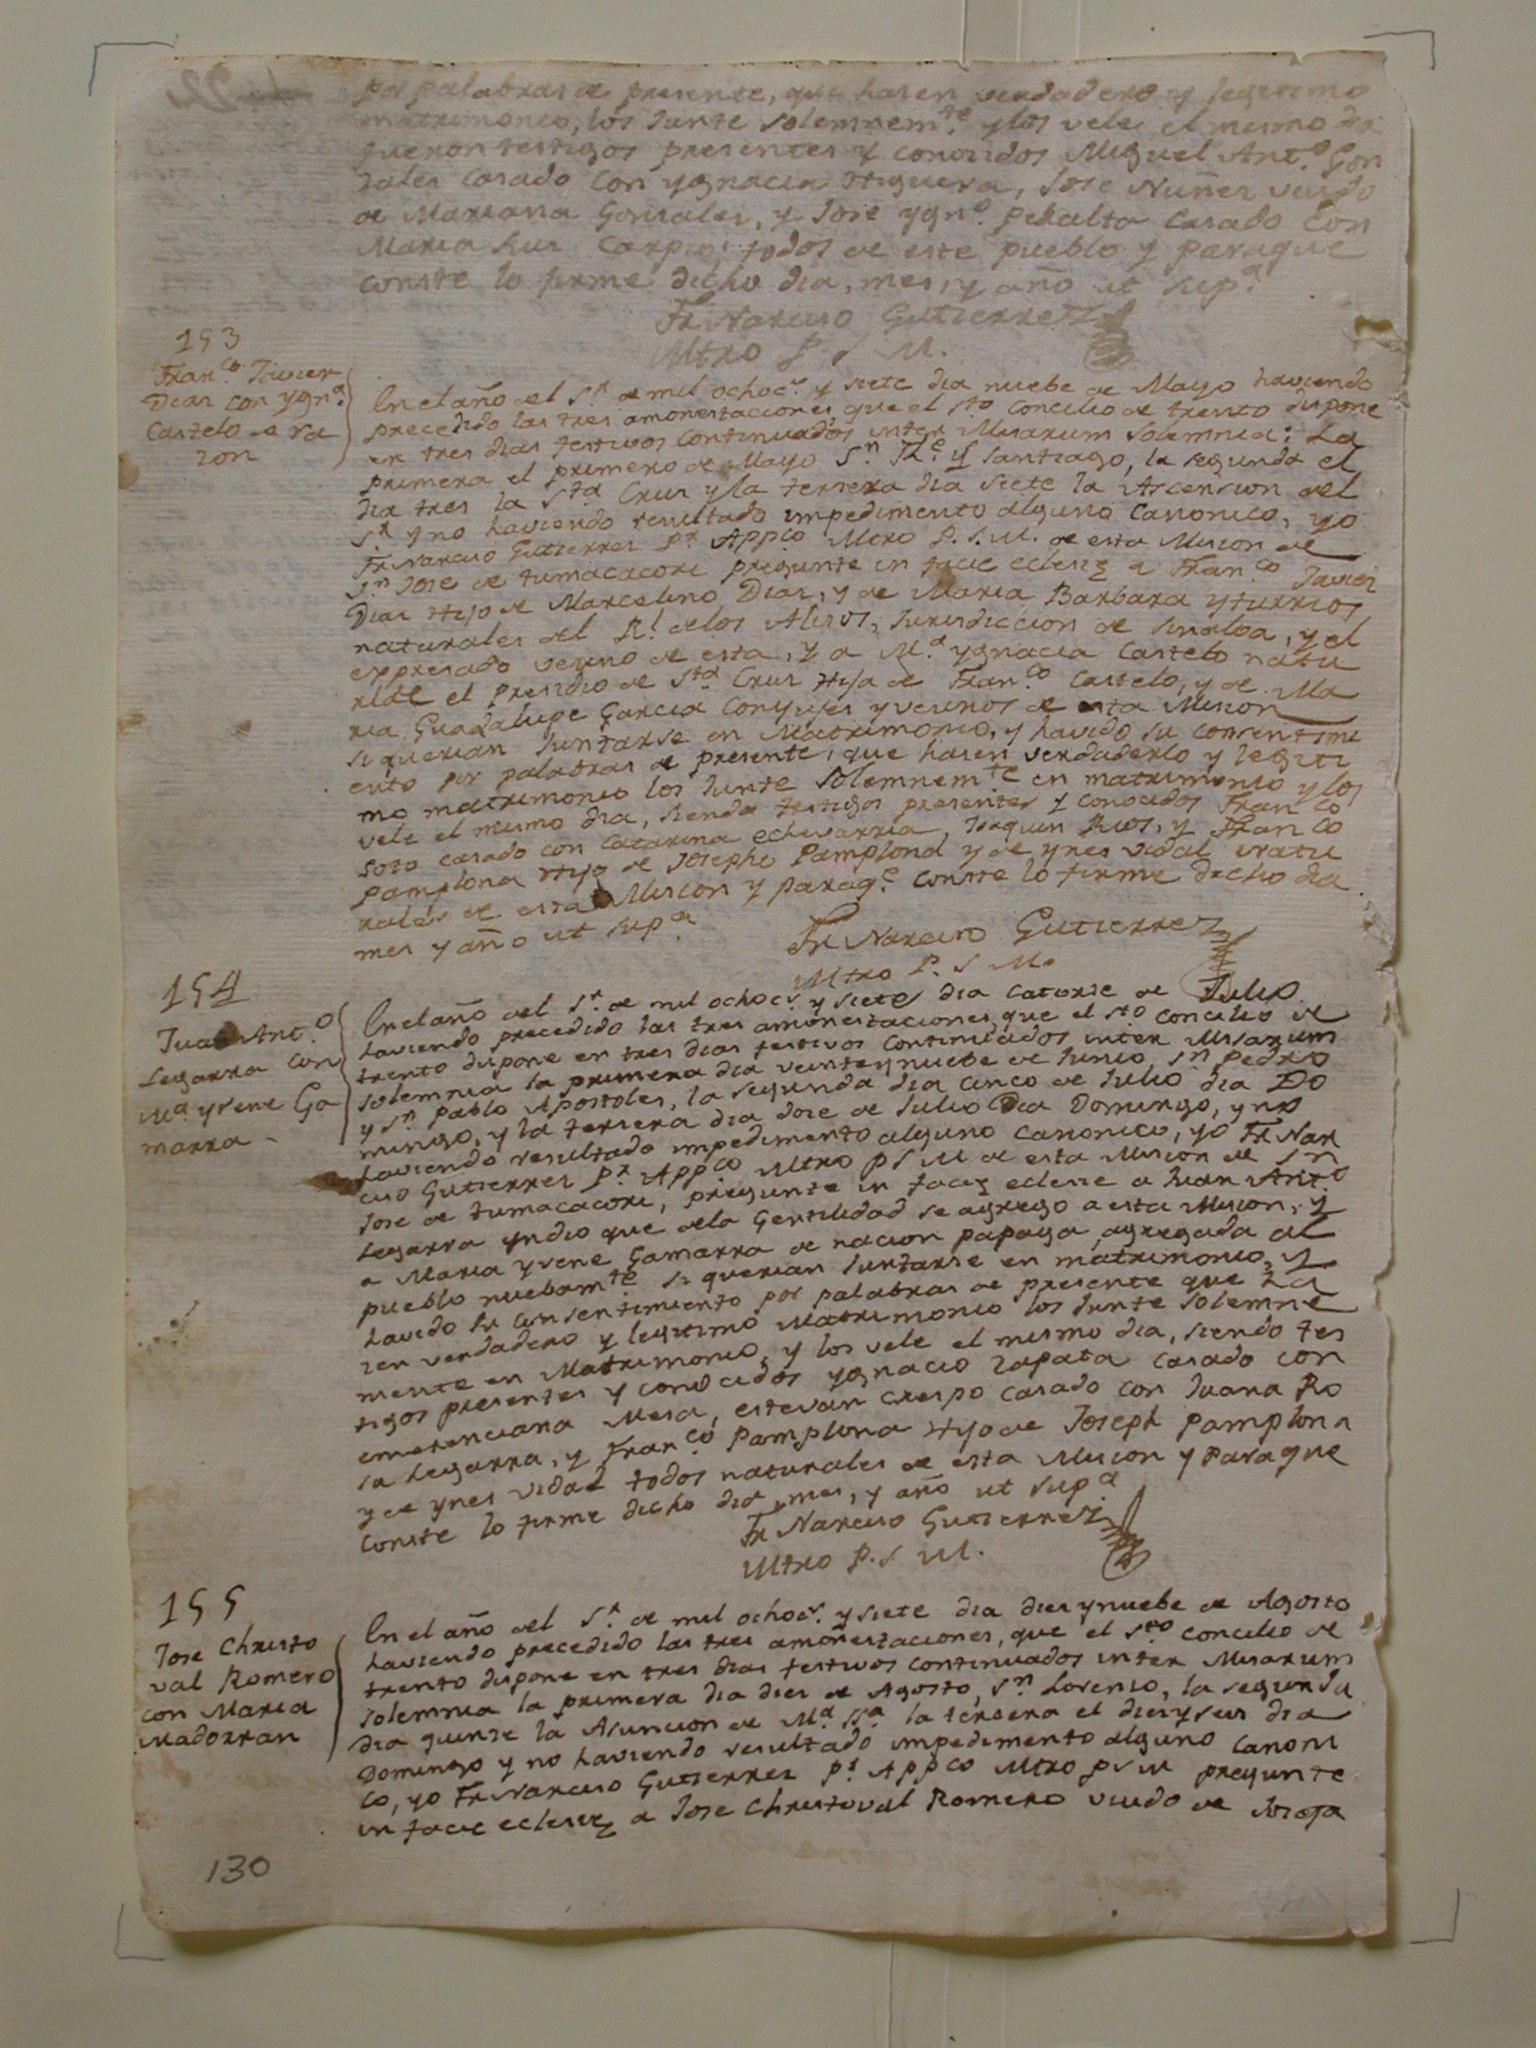 por palabras de presente, que hasen verdadero y legitimo
matrimonio, los Junte solemnem.te y los vele el mismo dia
fueron testigos presentes y conosidos Miguel Ant.o Gon
sales casado con ygnacia Higuera, Jose Nuñes viudo
de Mariana Gonsales, y Jose ygn.o peralta casado con
Maria Lus Carpio; todos de este pueblo y paraque
conste lo firme dicho dia, mes, y año ut sup.a
Fr Narciso Gutierrez
Mtro P. S M.
153
Fran.co Javier
Dias con ygn.a
Castelo de ra
zon
En el año del S.r de mil ochoc.s y siete dia nuebe de Mayo haviendo
precedido las tres amonestaciones, que el S.to Concilio de trento dispone
en tres dias festivos continuados inter Misarum solemnia; La
primera el primero de Mayo S.n y Santiago, la segunda el
dia tres la S.ta Crus y la tersera dia siete la Ascension del
S.r y no haviendo resultado impedimento alguno canonico, yo
Fr Narciso Gutierres P.r Appco Mtro P. S. M. de esta Mision de
S.n Jose de tumacacori pregunte in facie eclesie a Fran.co Javier
Dias Hijo de Marcelino Dias, y de Maria Barbara yturrios
naturales del R.l de los Alisos, Jurisdiccion de sinaloa, y el
expresado vesino de esta, y a M.a ygnacia Castelo natu
ral de el presidio de S.ta Crus Hija de Fran.co Castelo, y de Ma
ria Guadalupe Garcia Conyujes y vesinos de esta Mision
si querian Juntarse en Matrimonio, y havido su consentimi
ento por palabras de presente, que hasen verdaderlo y legiti
mo matrimonio los Junte solemnem.te en matrimonio y los
vele el mismo dia, siendo testigos presentes y conocidos Fran co
soto casado con Catarina echevarria, Joaquin Rios, y Fran co
pamplona Hijo de Josephe Pamplona y de ynes vidal natu
rales de esta Mision y paraq.e conste lo firme dicho dia
mes y año ut sup.a
Fr Narciso Gutierrez
Mtro P. S M.
154
Juan Ant.o
Legarra con
M.a yrene Ga
marra
En el año del S.r de mil ochoc.s y siete dia catorse de Julio
haviendo precedido las tres amonestaciones que el S.to Concilio de
trento dispone en tres dias festivos continuados inter Misarum
solemnia la primera dia veinteynuebe de Junio S.n pedro
y S.n pablo Apostoles, la segunda dia cinco de Julio dia Do
mingo, y la tersera dia dose de Julio Dia Domingo, y no
haviendo resultado impedimento alguno canonico, yo Fr Nar
ciso Gutierres P.r Appco Mtro P S M de esta Mision de Sn
Jose de tumacacori, pregunte in facie eclesie a Juan Ant.o
Legarra yndio que dela Gentilidad se agrego a esta Mision, y
a Maria yrene Gamarra de nacion papaga, agregada al
pueblo nuebam.te si querian Juntarse en matrimonio, y
havido su consentimiento por palabras de presente que ha
sen verdadero y legitimo Matrimonio los Junte solemne
mente en Matrimonio, y los vele el mismo dia, siendo tes
tigos presentes y conocidos ygnacio zapata casado con
emerenciana Mesa, estevan Crespo casado con Juana Ro
sa Legarra, y Fran.co Pamplona Hijo de Joseph pamplona
y de ynes vidal todos naturales de esta Mision y paraque
conste lo firme dicho dia, mes, y año ut sup.a
Fr Narciso Gutierrez
Mtro P. S M.
155
Jose Christo
val Romero
con Maria
Madorran
En el año del S.r de mil ochoc.s y siete dia dies ynuebe de Agosto
haviendo precedido las tres amonestaciones, que el S.to Concilio de
trento dispone en tres dias festivos continuados inter Misarum
solemnia la primera dia dies de Agosto, S.n Lorenso, la segunda
dia quinse la Asuncion de M.a S.a la tersera el diesyseis dia
Domingo y no haviendo resultado impedimento alguno canoni
co, yo Fr Narciso Gutierres P.r Appco Mtro P S M pregunte
in facie eclesie a Jose Christoval Romero viudo de Josefa
130